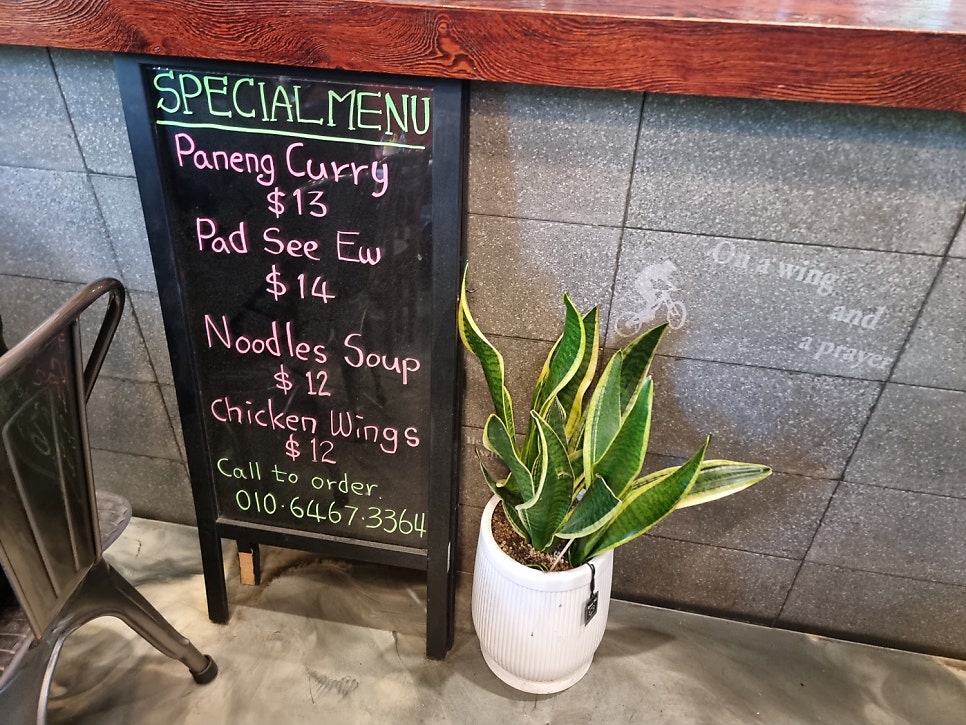 SPECIAL MENU
Paneng Curry
$13
Pad See Ew
$14
Noodles Soup
$12
Chicken Wings
$12
Call to order.
010.6467.3364
On a wing
and
a prayer